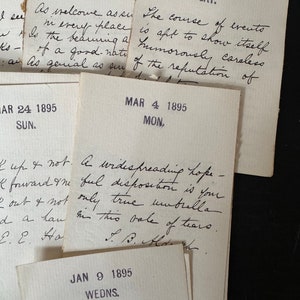 As welcome as sun
in every place
is the beaming a
of a good nat
As genial as sun
The course of events
is apt to show itself
humorously careless
of the reputation of
MAR 24 1895
SUN.
k up & not
k forward & n
k out & not
d a han
E. E. Ha
MAR 4 1895
MON.
A widespreading hope-
ful disposition is your
only true umbrella
in this vale of tears.
T. B. Al
JAN 9 1895
WEDNS.